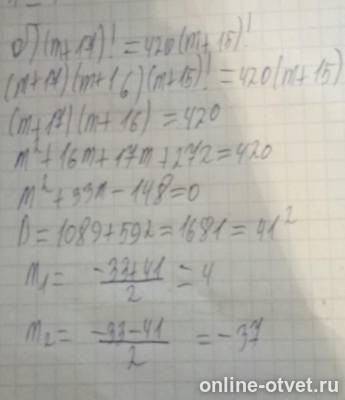 б) (m+17)! = 420(m+15)!
(m+17)(m+16)(m+15)! = 420(m+15)
(m+17)(m+16) = 420
m² + 16m + 17m + 272 = 420
m² + 33m - 148 = 0
D = 1089 + 592 = 1681 = 41²
m₁ = (-33+41)/2 = 4
m₂ = (-33-41)/2 = -37
online-otvet.ru